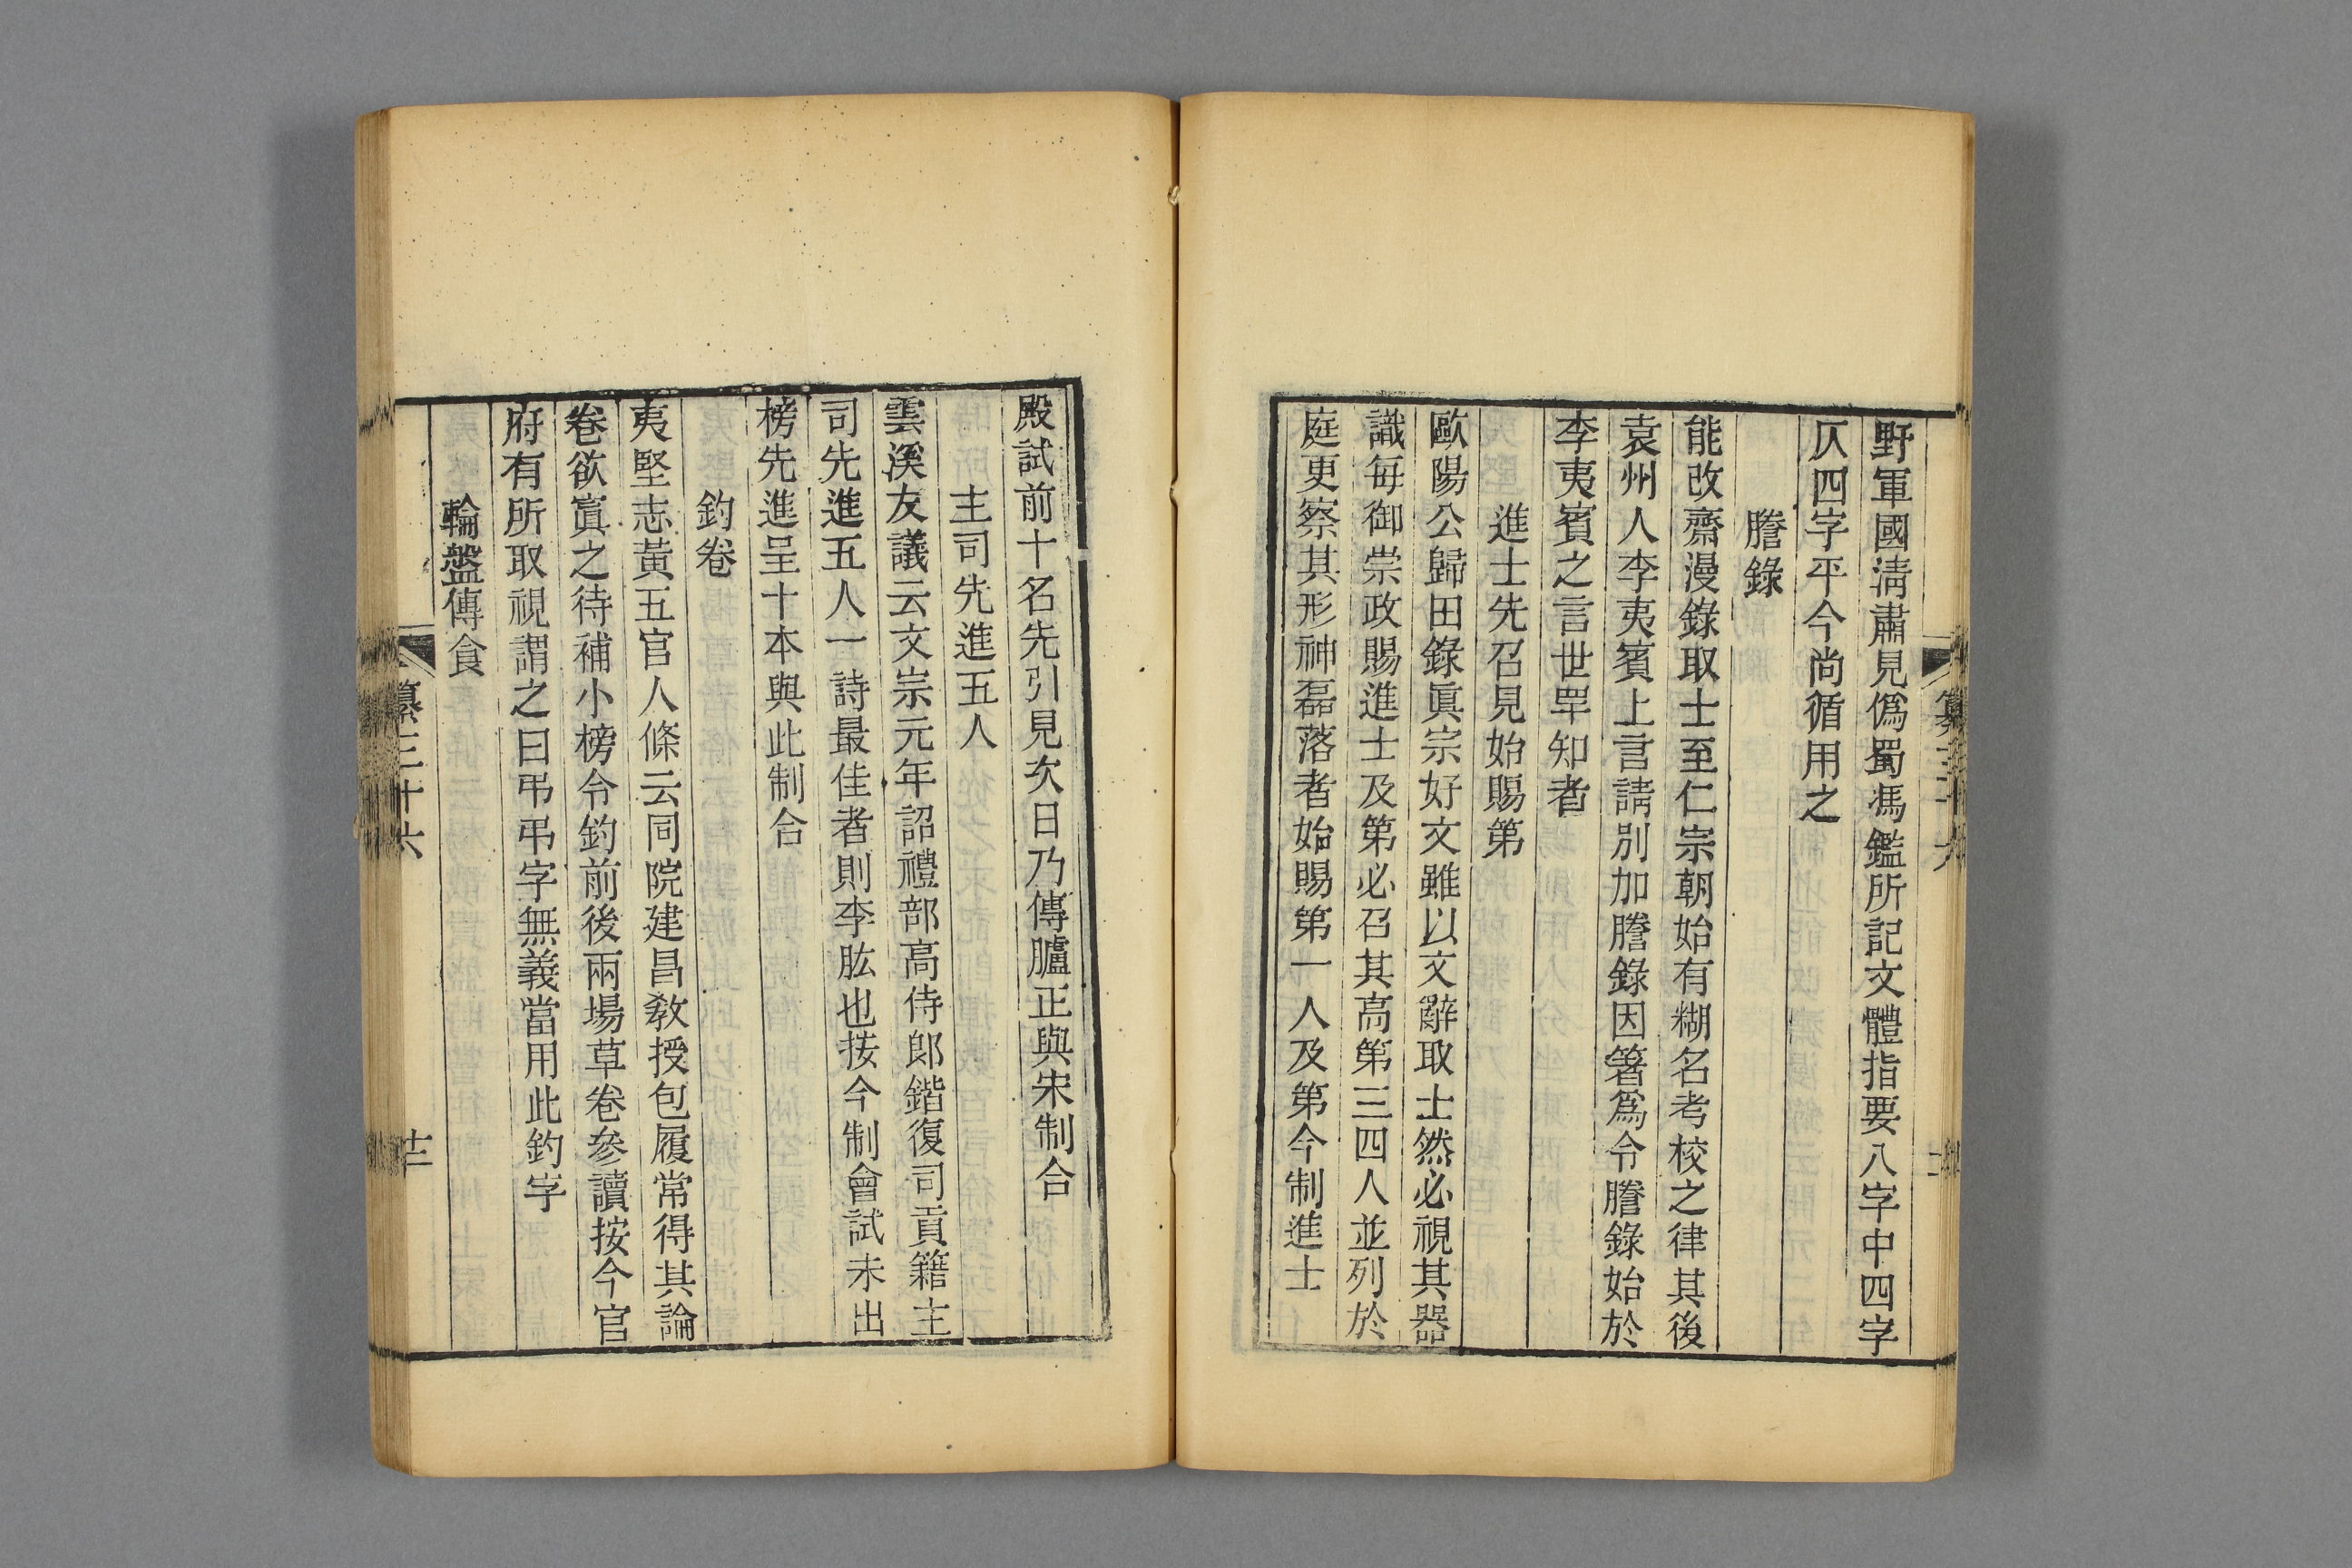 野軍國淸肅見僞蜀馮鑑所記文體指要八字中四字
仄四字平今尚循用之
謄錄
能改齋漫錄取士至仁宗朝始有糊名考校之律其後
袁州人李夷賓上言請別加謄錄因箸爲令謄錄始於
李夷賓之言世罕知者
進士先召見始賜第
歐陽公歸田錄眞宗好文雖以文辭取士然必視其器
識每御崇政賜進士及第必召其高第三四人並列於
庭更察其形神磊落者始賜第一人及第今制進士
殿試前十名先引見次日乃傳臚正與宋制合
主司先進五人
雲溪友議云文宗元年詔禮部高侍郎鍇復司貢籍主
司先進五人一詩最佳者則李肱也按今制會試未出
榜先進呈十本與此制合
釣卷
夷堅志黃五官人條云同院建昌敎授包履常得其論
卷欲寘之待補小榜令釣前後兩場草卷參讀按今官
府有所取視謂之曰弔弔字無義當用此釣字
輪盤傳食
纂三十六